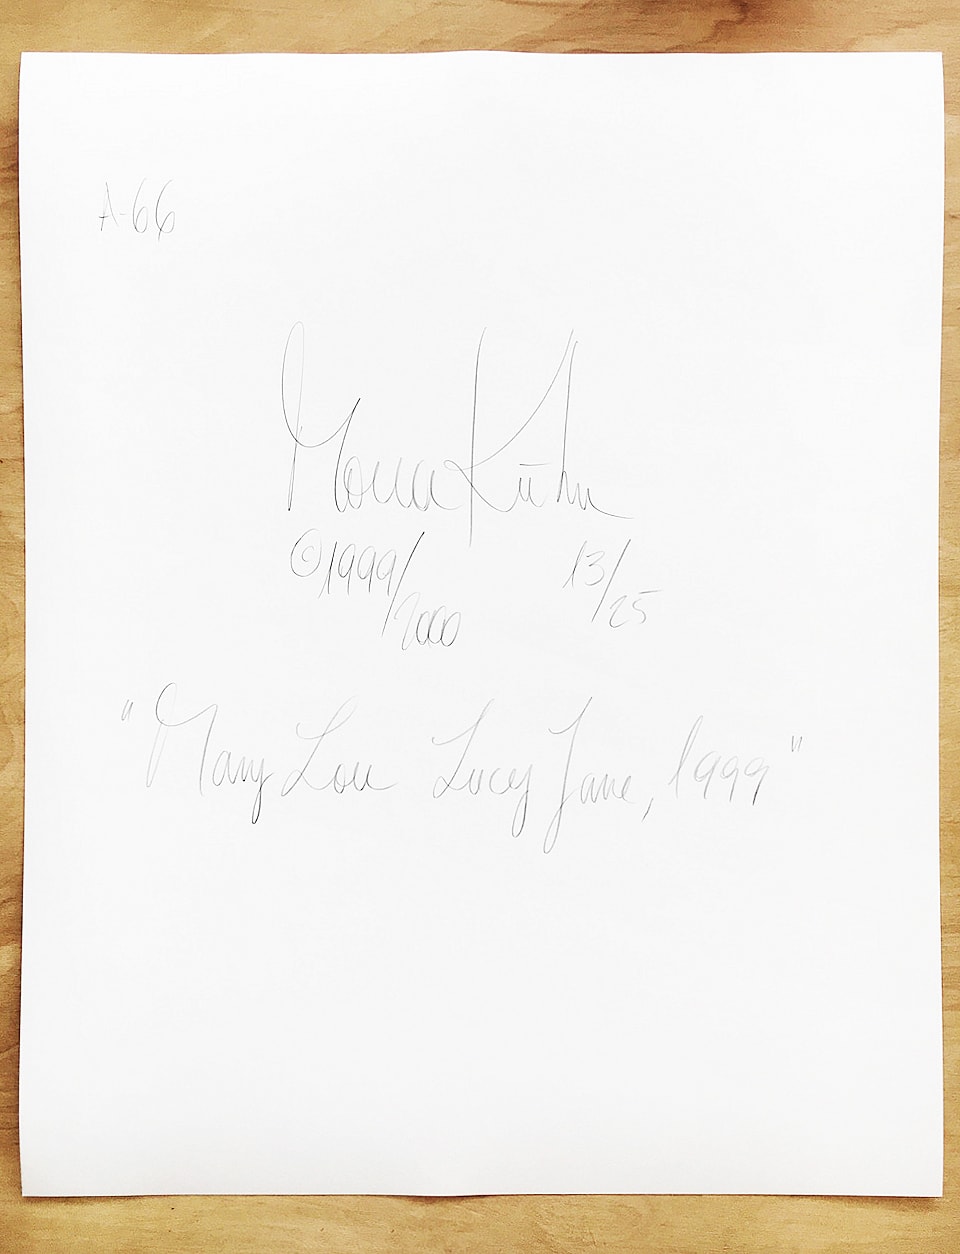 A-66
Mona Kuhn
©1999/2000 13/25
"Mary Lou Lucy Jane, 1999"